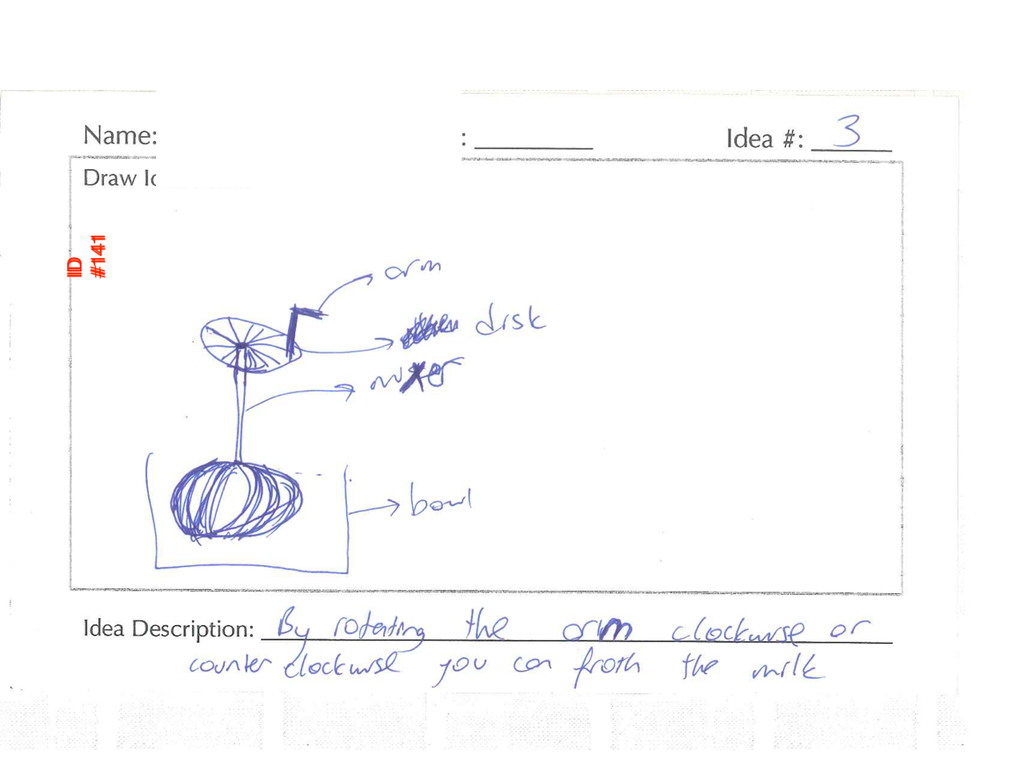 Name: : Idea #: 3
Draw Id
ID
#141
arm
disk
mixer
bowl
Idea Description: By rotating the arm clockwise or
counter clockwise you can froth the milk